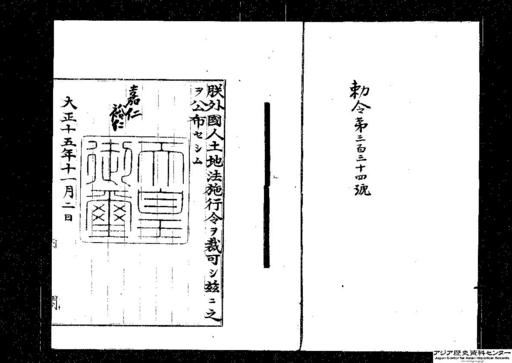 勅令第三百三十四號
朕外國人土地法施行令ヲ裁可シ茲ニ之
ヲ公布セシム
嘉仁
裕仁
天皇
御璽
大正十五年十一月二日
内閣
アジア歴史資料センター
Japan Center for Asian Historical Records